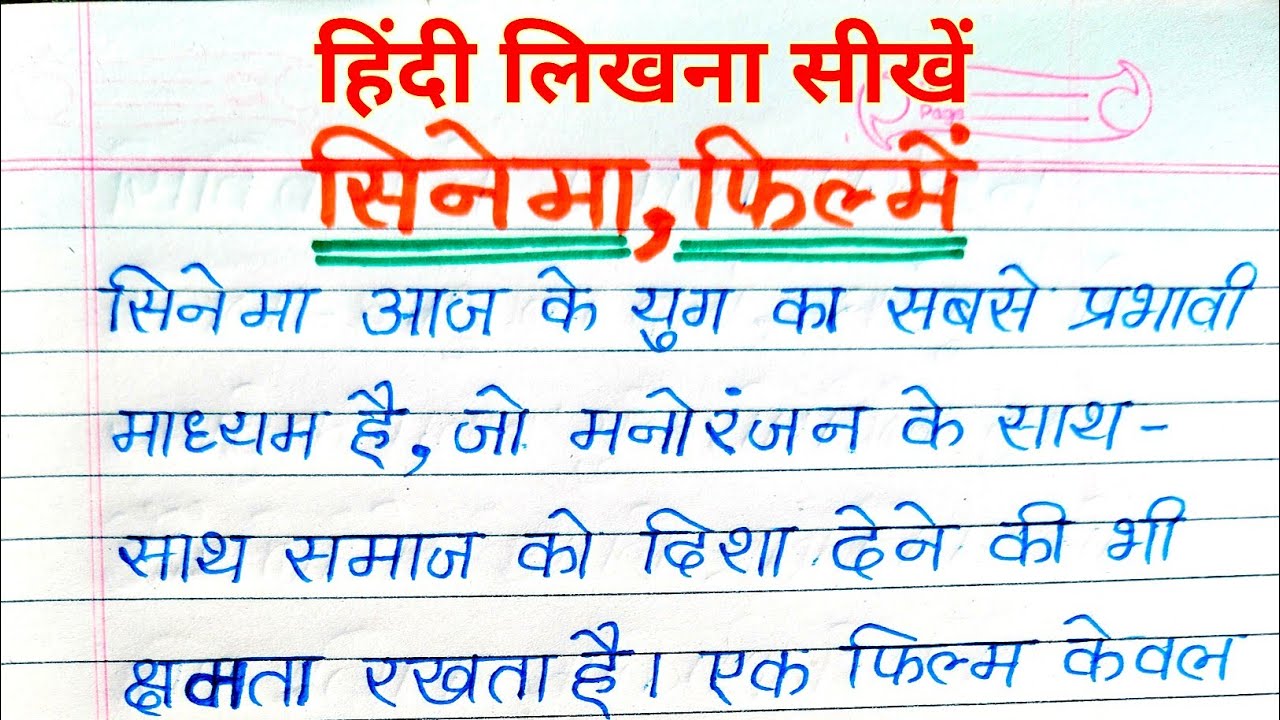 हिंदी लिखना सीखें
Page
सिनेमा, फिल्में
सिनेमा आज के युग का सबसे प्रभावी
माध्यम है, जो मनोरंजन के साथ-
साथ समाज को दिशा देने की भी
क्षमता रखता है। एक फिल्म केवल